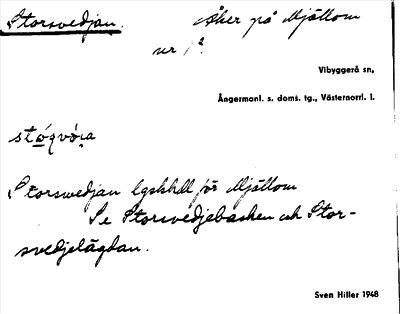 Storsvedjan. Åker på Mjällom
nr 1².
Vibyggerå sn,
Ångermanl. s. doms. tg., Västernorrl. l.
Storsvedjan lgshhll för Mjällom
Se Storsvedjebacken och Stor-
svedjelägdan.
Sven Hitier 1948